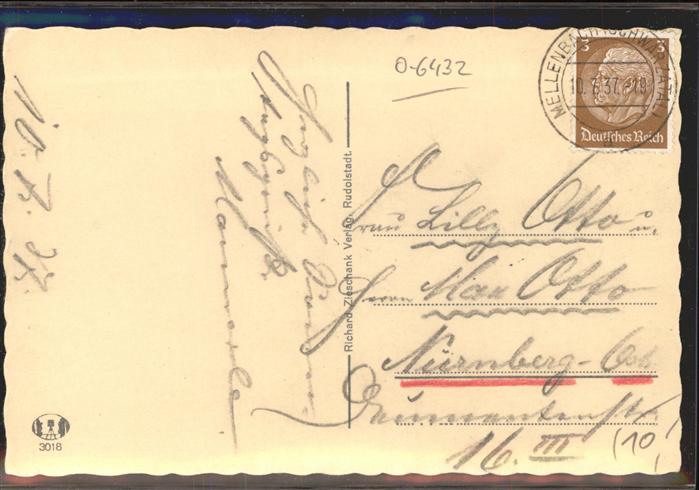 O-6432
MELLENBACH (SCHWARZATAL)
10.7.37.-19
3 3
Deutsches Reich
10. 7. 37.
Herzliche Grüsse
Richard Zieschank Verlag, Rudolstadt.
Frau Lilly Otto u.
Herrn Max Otto
Nürnberg-Ost
16. III (10)
3018